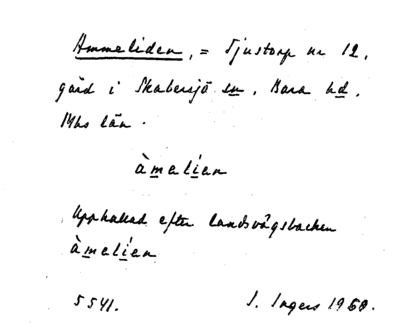 Ammeliden, = Tjustorp nr 12,
gård i Skabersjö sn, Bara hd,
Mhs län.
àmelíen
Uppkallad efter landsvägsbacken
àmelíen
5541. I. Ingers 1958.